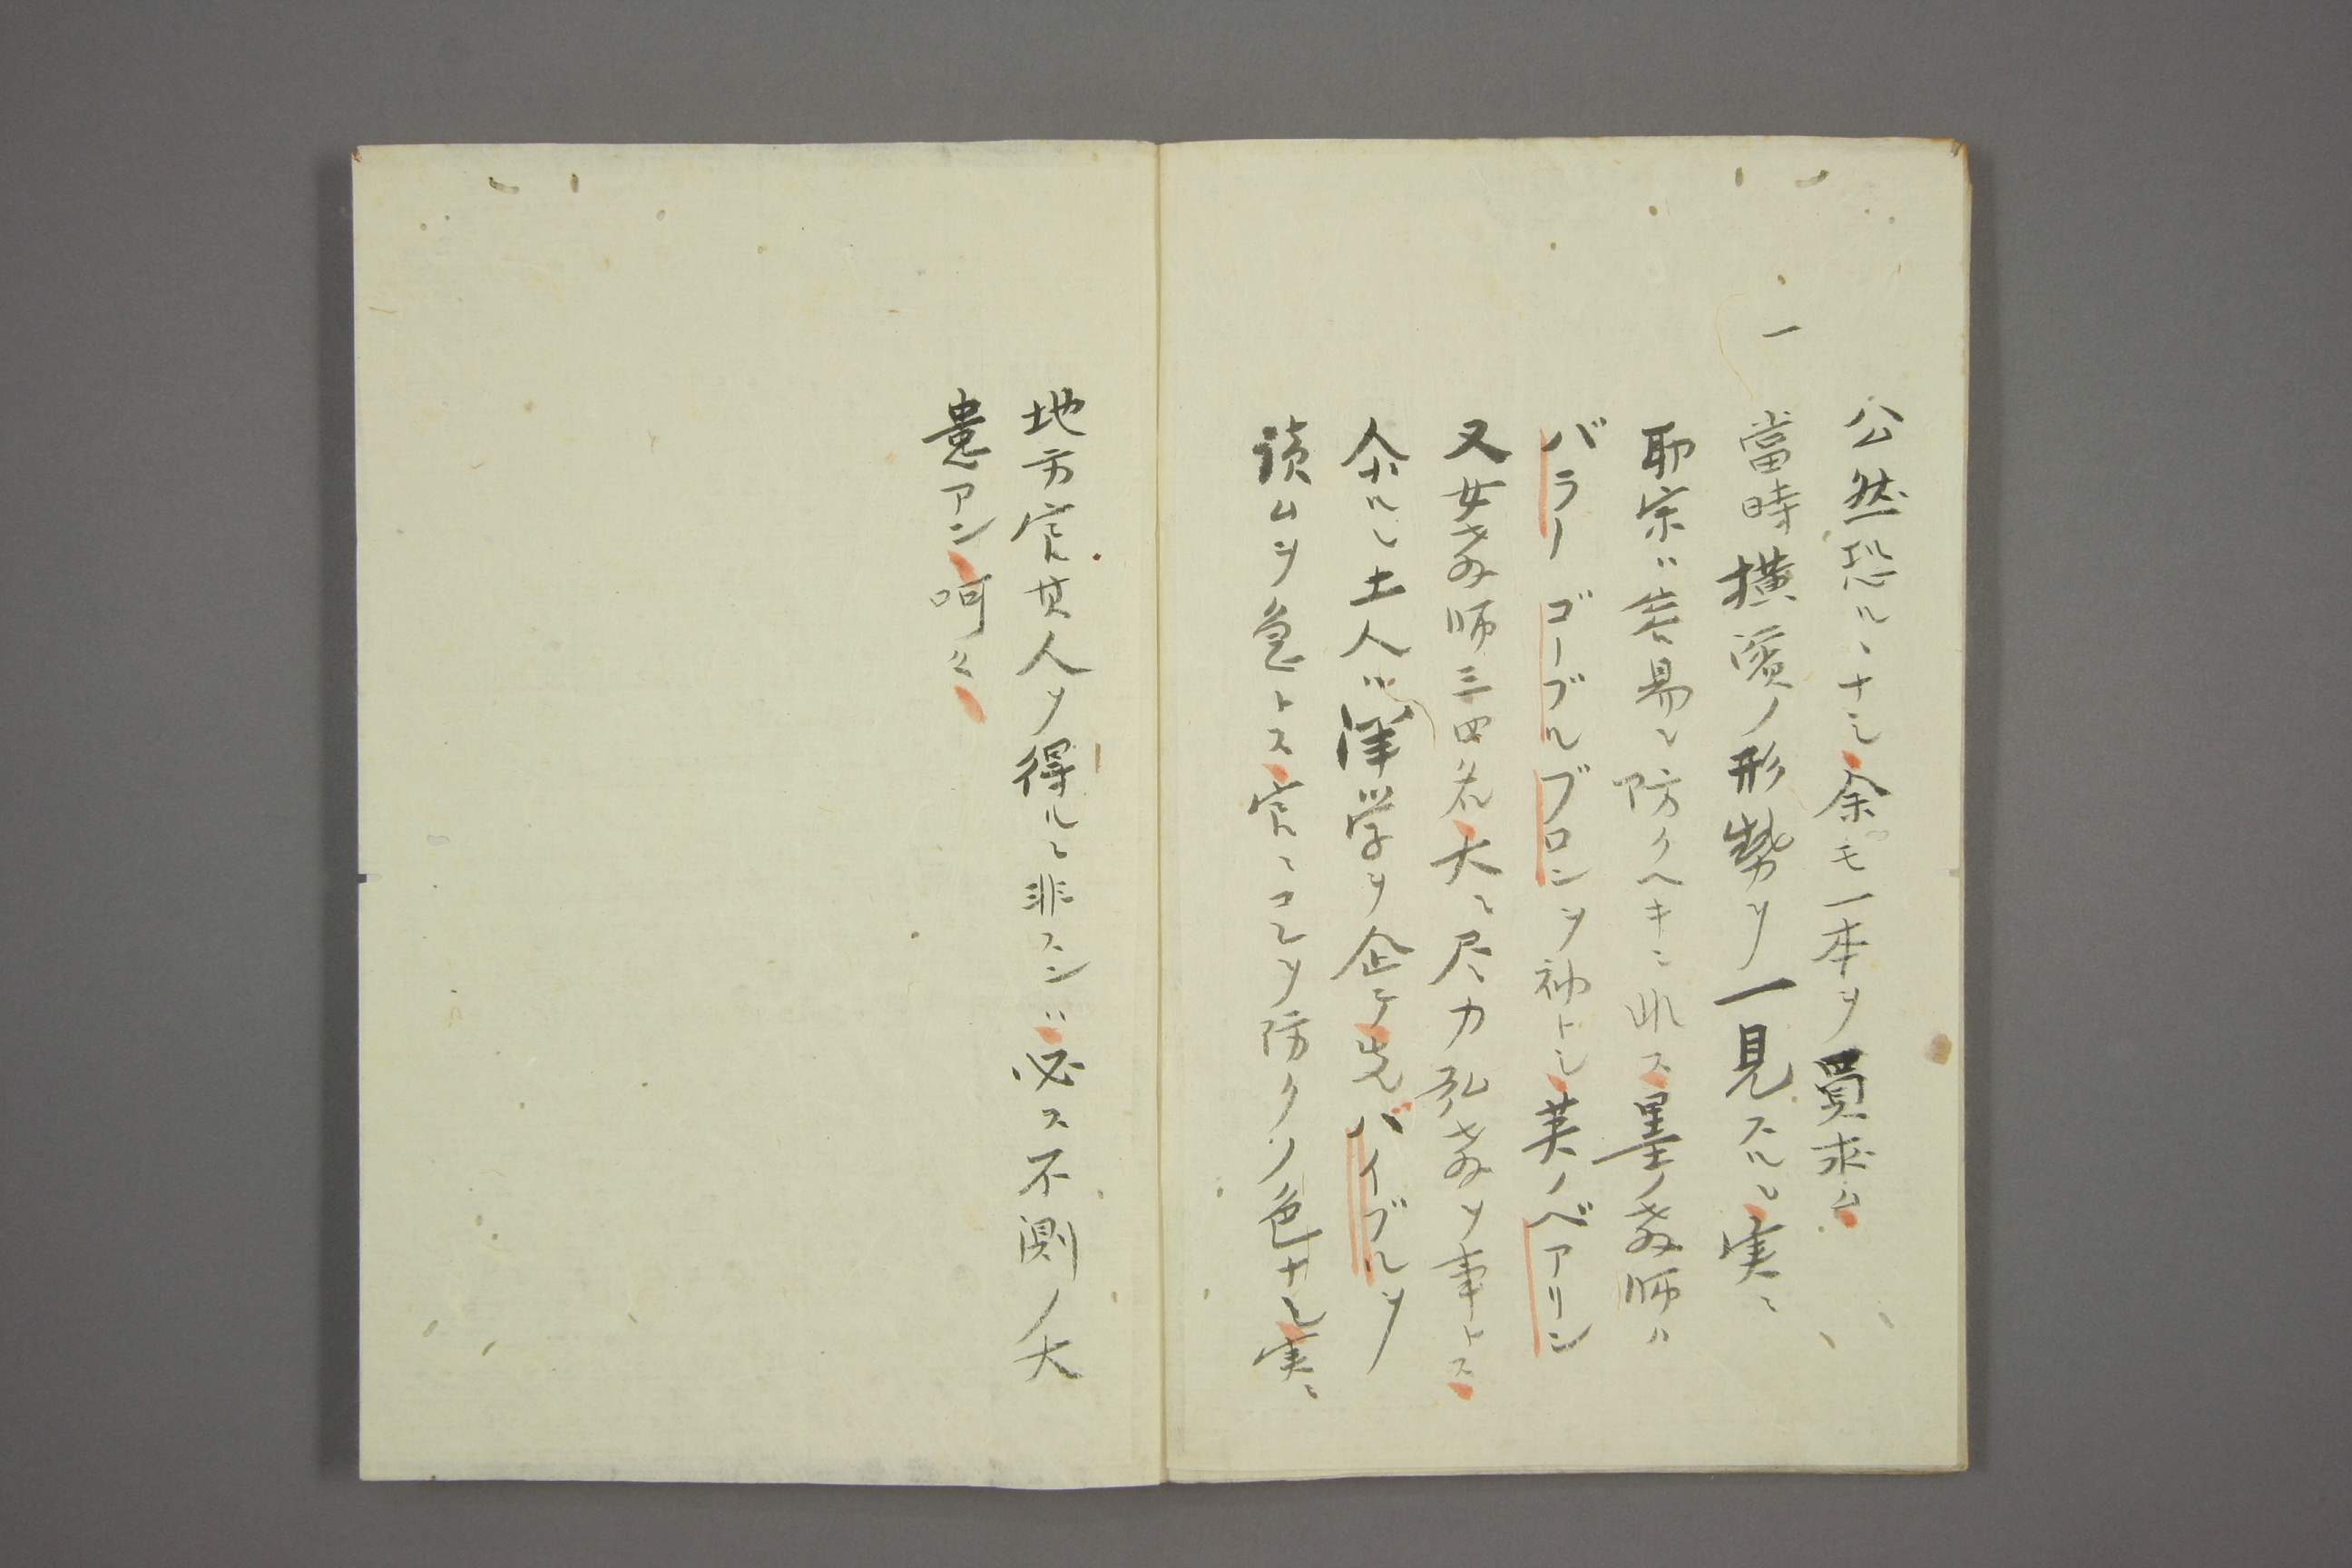 公然恐ルヽナシ余モ一本ヲ買求ム
一
當時横濱ノ形勢ヲ一見スルニ実ニ
耶宗ハ容易ニ防クヘキニ非ス墨ノ教師ハ
バラー ゴーブル ブロンヲ初トシ英ノベアリン
又女教師三四名大ニ尽力弘教ヲ事トス
余ルニ土人ハ洋学ヲ企テ先バイブルヲ
読ムヲ急トス官ニコレヲ防クノ色ナシ実ニ
地方官其人ヲ得ルニ非スンハ必ス不測ノ大
患アン呵々